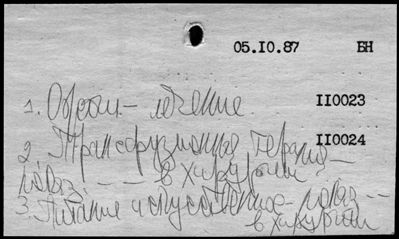 05.10.87 БН
1. Ожоги - лечение II0023
2. Трансфузионная терапия - II0024
показ. - - - в хирургии
3. Питание искусственное - показ - -
в хирургии